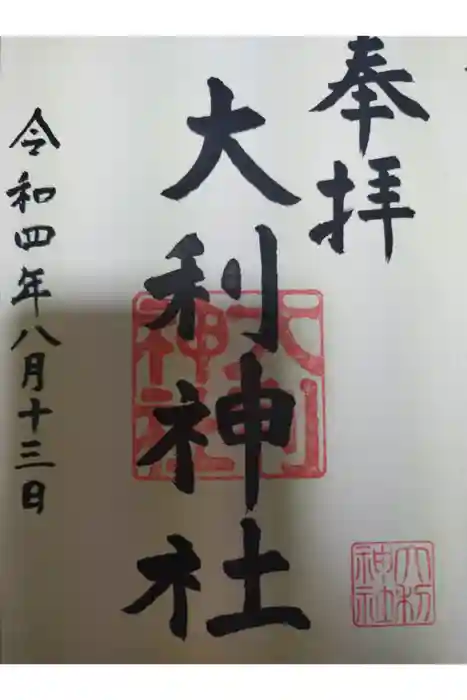 奉拝
大利神社
令和四年八月十三日
大利
神社
大利
神社